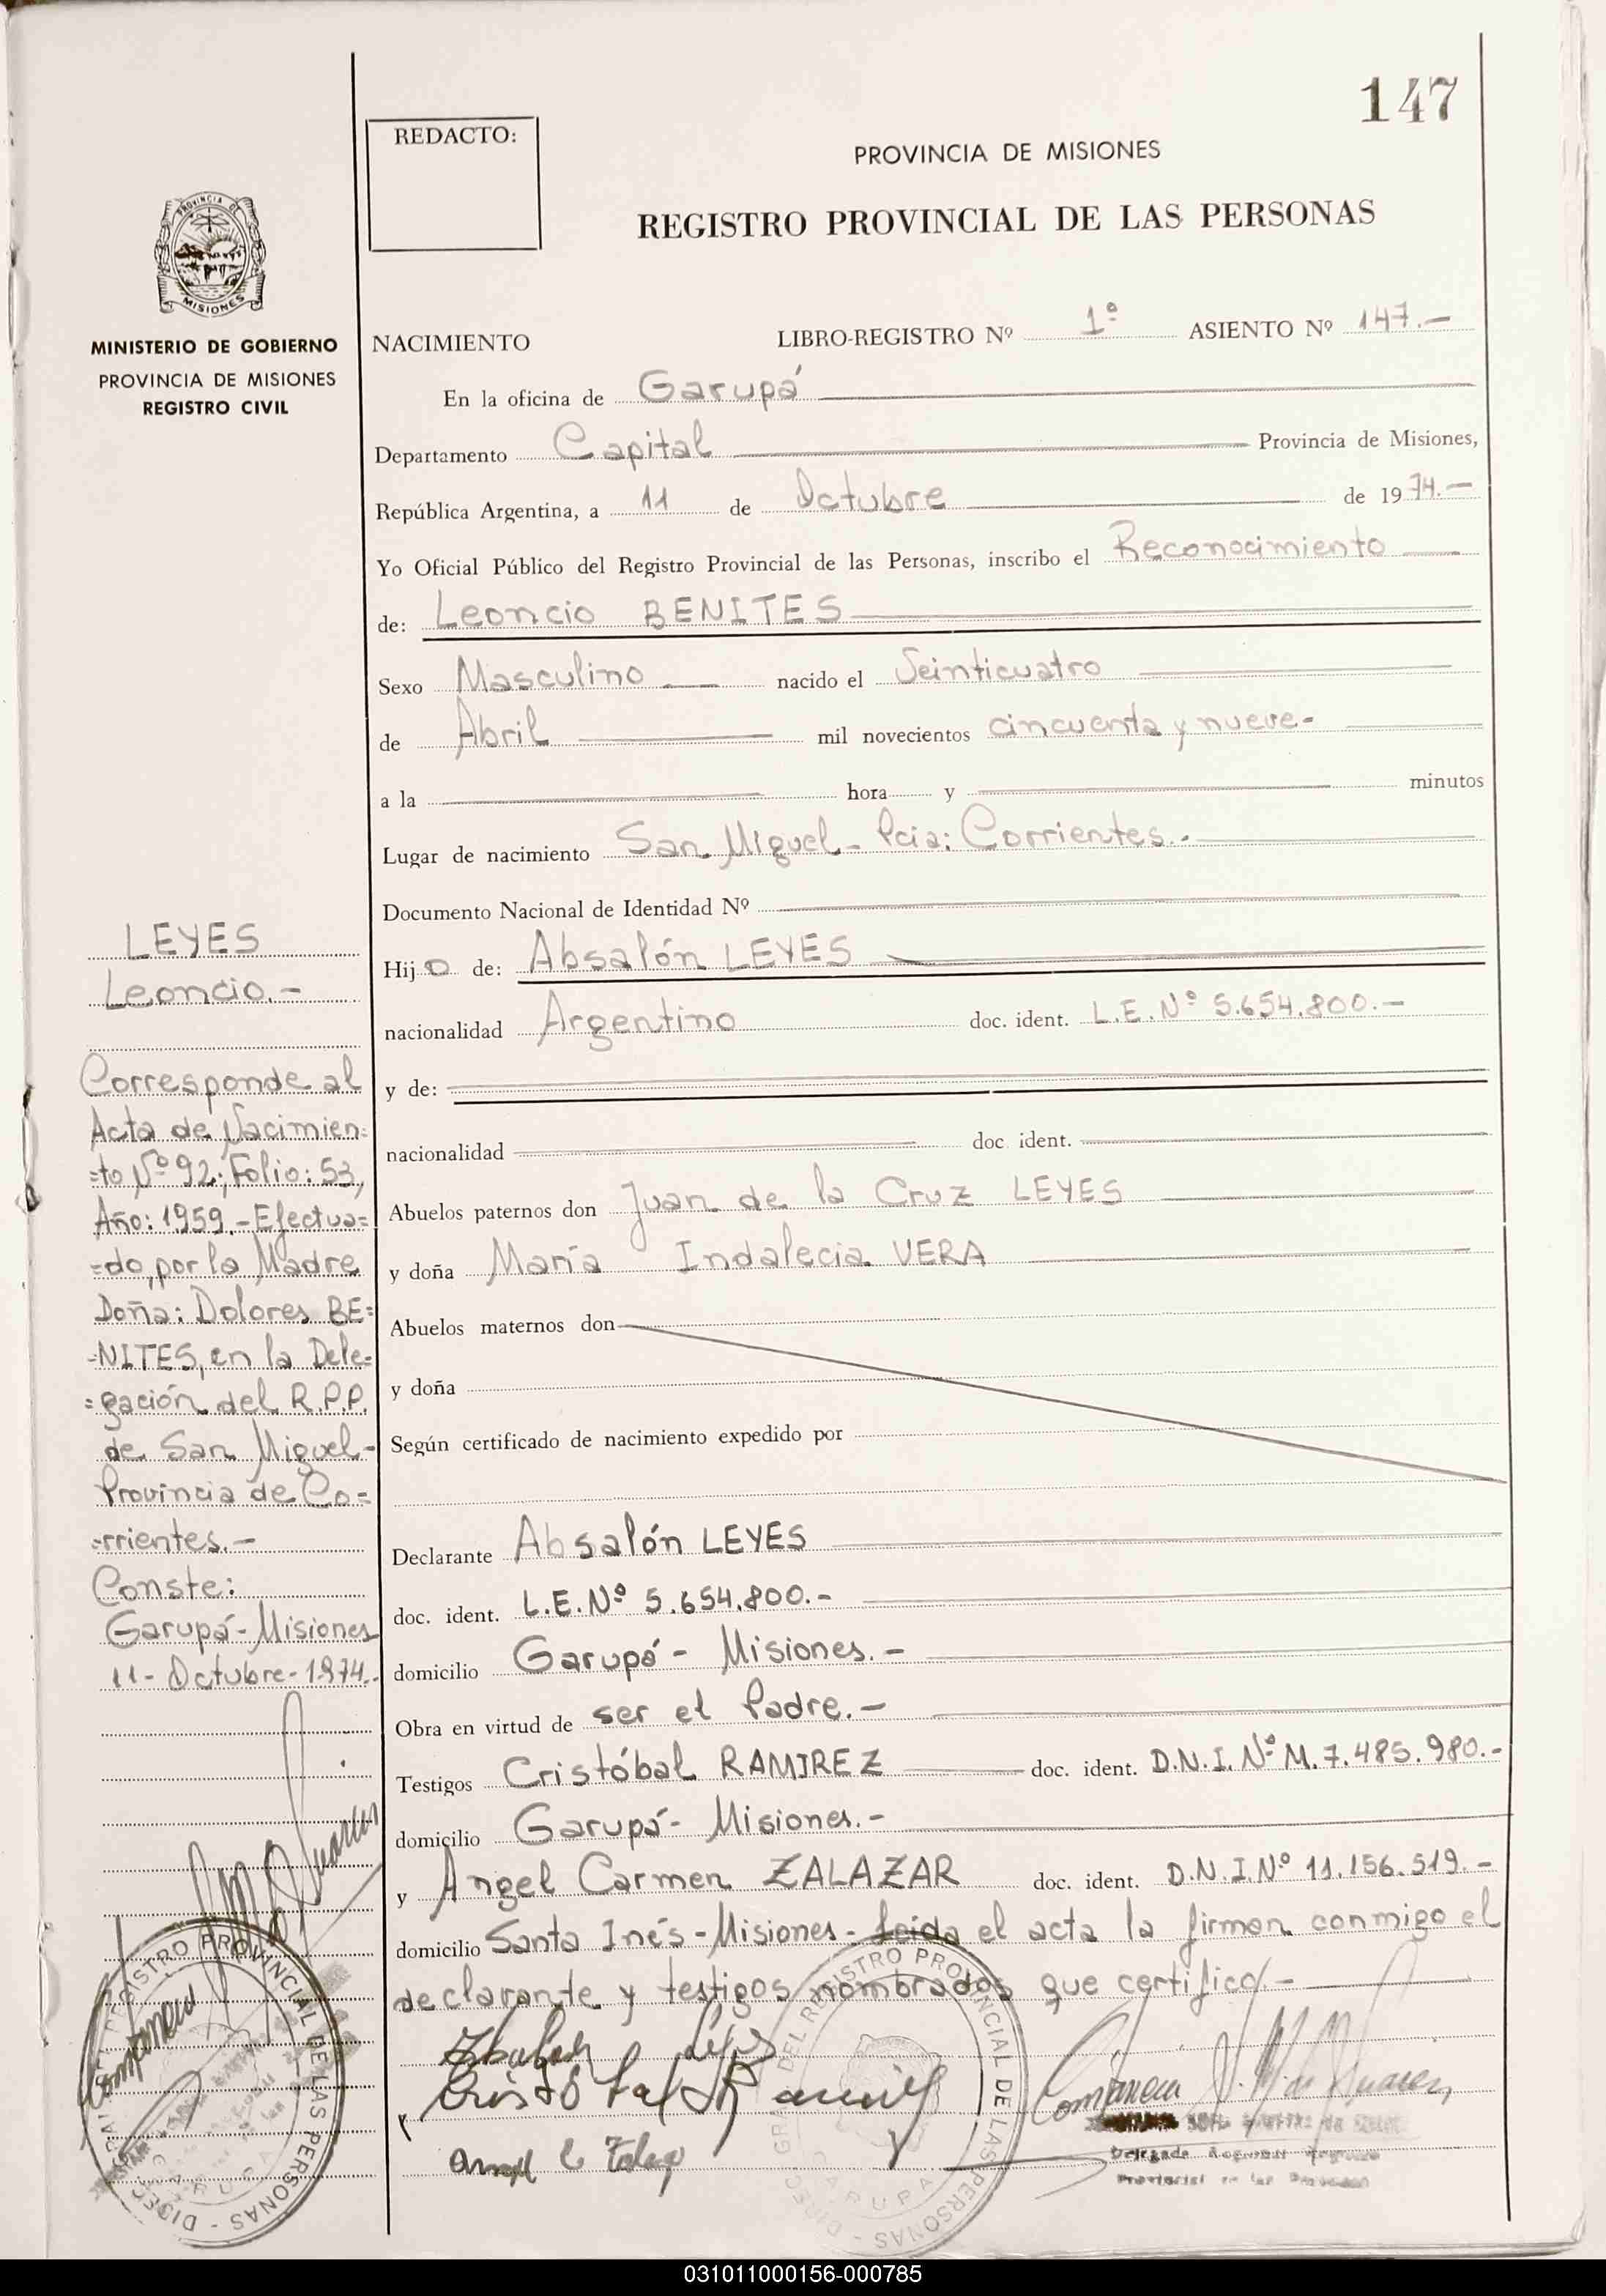 147
REDACTO:
PROVINCIA DE MISIONES
REGISTRO PROVINCIAL DE LAS PERSONAS
MISIONES
MINISTERIO DE GOBIERNO
PROVINCIA DE MISIONES
REGISTRO CIVIL
NACIMIENTO LIBRO-REGISTRO Nº 1º ASIENTO Nº 147.-
En la oficina de Garupá
Departamento Capital Provincia de Misiones,
República Argentina, a 11 de Octubre de 1974.-
Yo Oficial Público del Registro Provincial de las Personas, inscribo el Reconocimiento
de: Leoncio BENITES
Sexo Masculino nacido el Veinticuatro
de Abril mil novecientos cincuenta y nueve.-
a la hora y minutos
Lugar de nacimiento San Miguel - Pcia: Corrientes.-
Documento Nacional de Identidad Nº
Hijo de: Absalón LEYES
nacionalidad Argentino doc. ident. L.E.Nº 5.654.800.-
y de:
nacionalidad doc. ident.
Abuelos paternos don Juan de la Cruz LEYES
y doña María Indalecia VERA
Abuelos maternos don
y doña
Según certificado de nacimiento expedido por
Declarante Absalón LEYES
doc. ident. L.E.Nº 5.654.800.-
domicilio Garupá - Misiones.-
Obra en virtud de ser el Padre.-
Testigos Cristóbal RAMIREZ doc. ident. D.N.I.Nº M.7.485.980.-
domicilio Garupá - Misiones.-
y Angel Carmen ZALAZAR doc. ident. D.N.I.Nº 11.156.519.-
domicilio Santa Inés - Misiones - Leida el acta la firman conmigo el
declarante y testigos nombrados que certifico.-
LEYES
Leoncio.-
Corresponde al
Acta de Nacimien=
=to Nº 92; Folio: 53,
Año: 1959.- Efectua=
=do, por la Madre
Doña: Dolores BE=
-NITES, en la Dele=
=gación del R.P.P.
de San Miguel-
Provincia de Co=
=rrientes.-
Conste:
Garupá - Misiones
11 - Octubre - 1974.-
REGISTRO PROVINCIAL DE LAS PERSONAS
GARUPA
DEL REGISTRO PROVINCIAL DE LAS PERSONAS
GARUPA
031011000156-000785